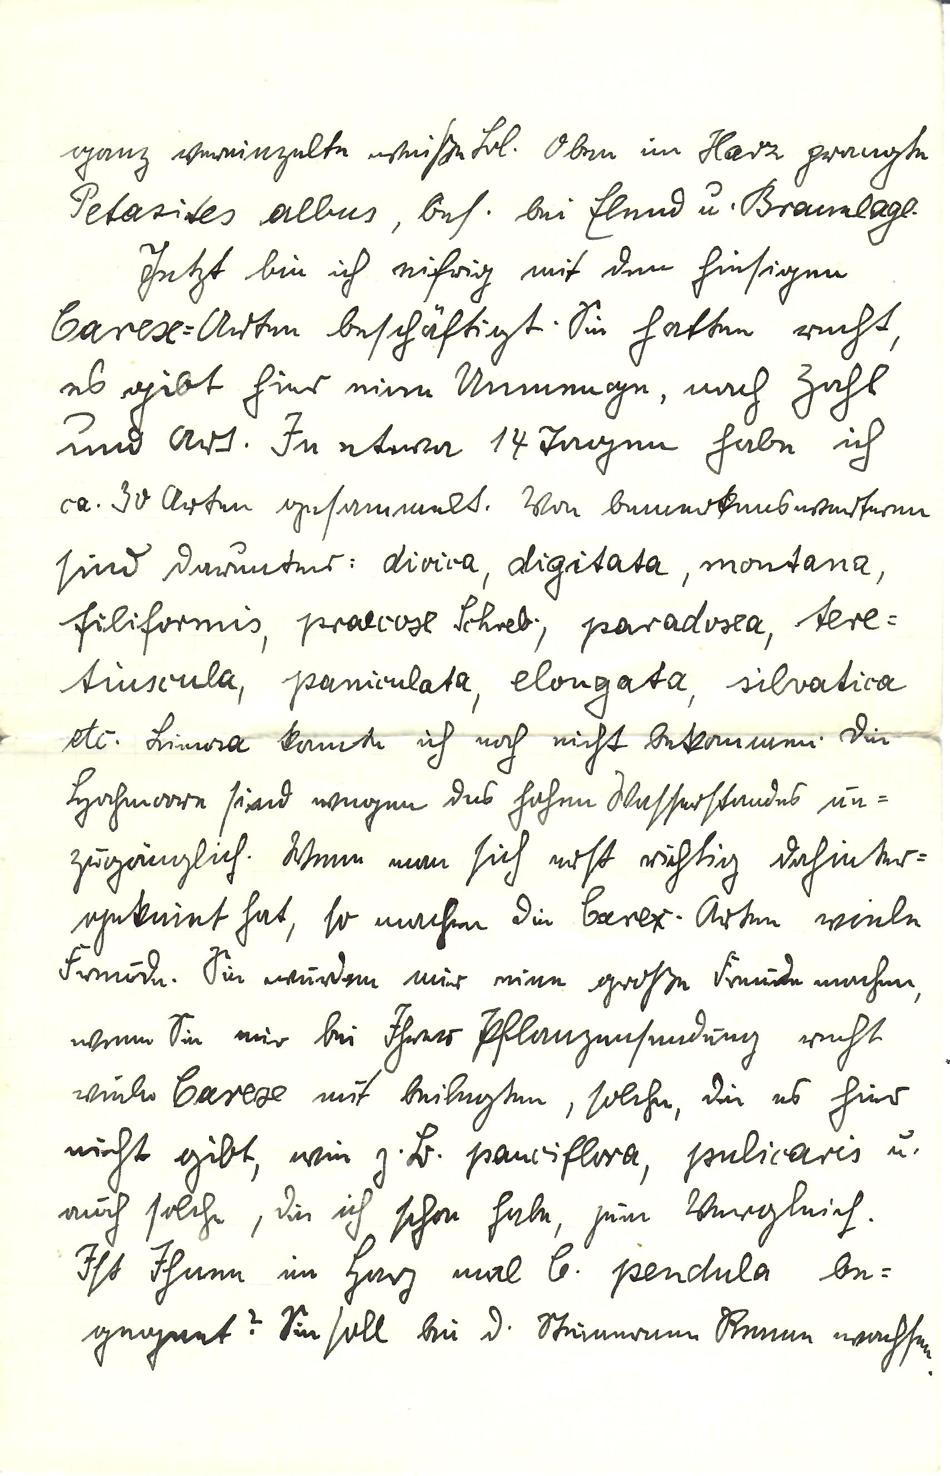 ganz vereinzelte weiße Bl. Oben im Harz prangte
Petasites albus, bes. bei Elend u. Braunlage.
Jetzt bin ich eifrig mit den hiesigen
Carex=Arten beschäftigt. Sie hatten recht,
es gibt hier eine Unmenge, nach Zahl
und Art. In etwa 14 Tagen habe ich
ca. 30 Arten gesammelt. Von bemerkenswerteren
sind darunter: dioica, digitata, montana,
filiformis, praecox Schreb., paradoxa, tere=
tiuscula, paniculata, elongata, silvatica
etc. Limosa konnte ich noch nicht bekommen. Die
Hochmoore sind wegen des hohen Wasserstandes un=
zugänglich. Wenn man sich erst richtig dahinter=
gekniet hat, so machen die Carex-Arten viele
Freude. Sie würden mir eine große Freude machen,
wenn Sie mir bei Ihrer Pflanzensendung recht
viele Carex mit beilegten, solche, die es hier
nicht gibt, wie z. B. pauciflora, pulicaris u.
auch solche, die ich schon habe, zum Vergleich.
Ist Ihnen im Harz mal C. pendula be=
gegnet? Sie soll bei d. Steinernen Renne wachsen.